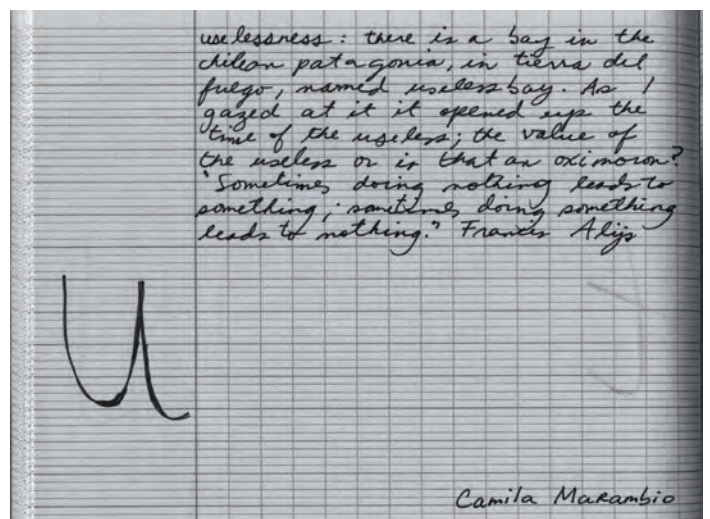 uselessness: there is a bay in the
chilean patagonia, in tierra del
fuego, named useless bay. As I
gazed at it it opened up the
time of the useless; the value of
the useless or is that an oximoron?
"Sometimes doing nothing leads to
something; sometimes doing something
leads to nothing." Francis Alijs
u
Camila Marambio